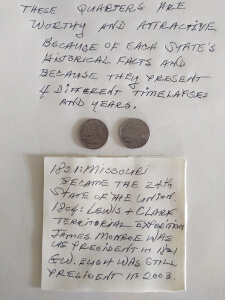 THESE QUARTERS ARE
WORTHY AND ATTRACTIVE
BECAUSE OF EACH STATE'S
HISTORICAL FACTS AND
BECAUSE THEY PRESENT
4 DIFFERENT TIMELAPSES
AND YEARS.
1821: MISSOURI
BECAME THE 24th
STATE OF THE UNION.
1804: LEWIS + CLARK
TERRITORIAL EXPEDITION
JAMES MONROE WAS
US PRESIDENT IN 1821
G.W. BUSH WAS STILL
PRESIDENT IN 2003.